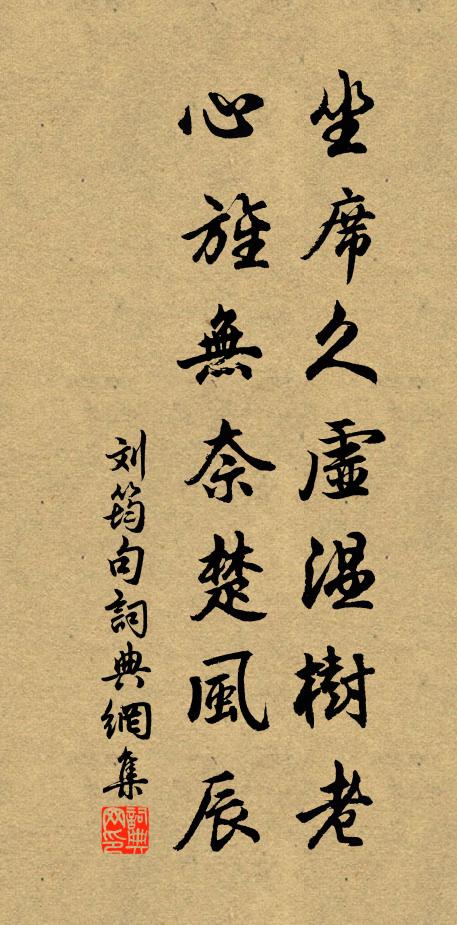 坐席久虛温樹老
心旌無奈楚風辰
刘筠句詞典網集
詞典网印